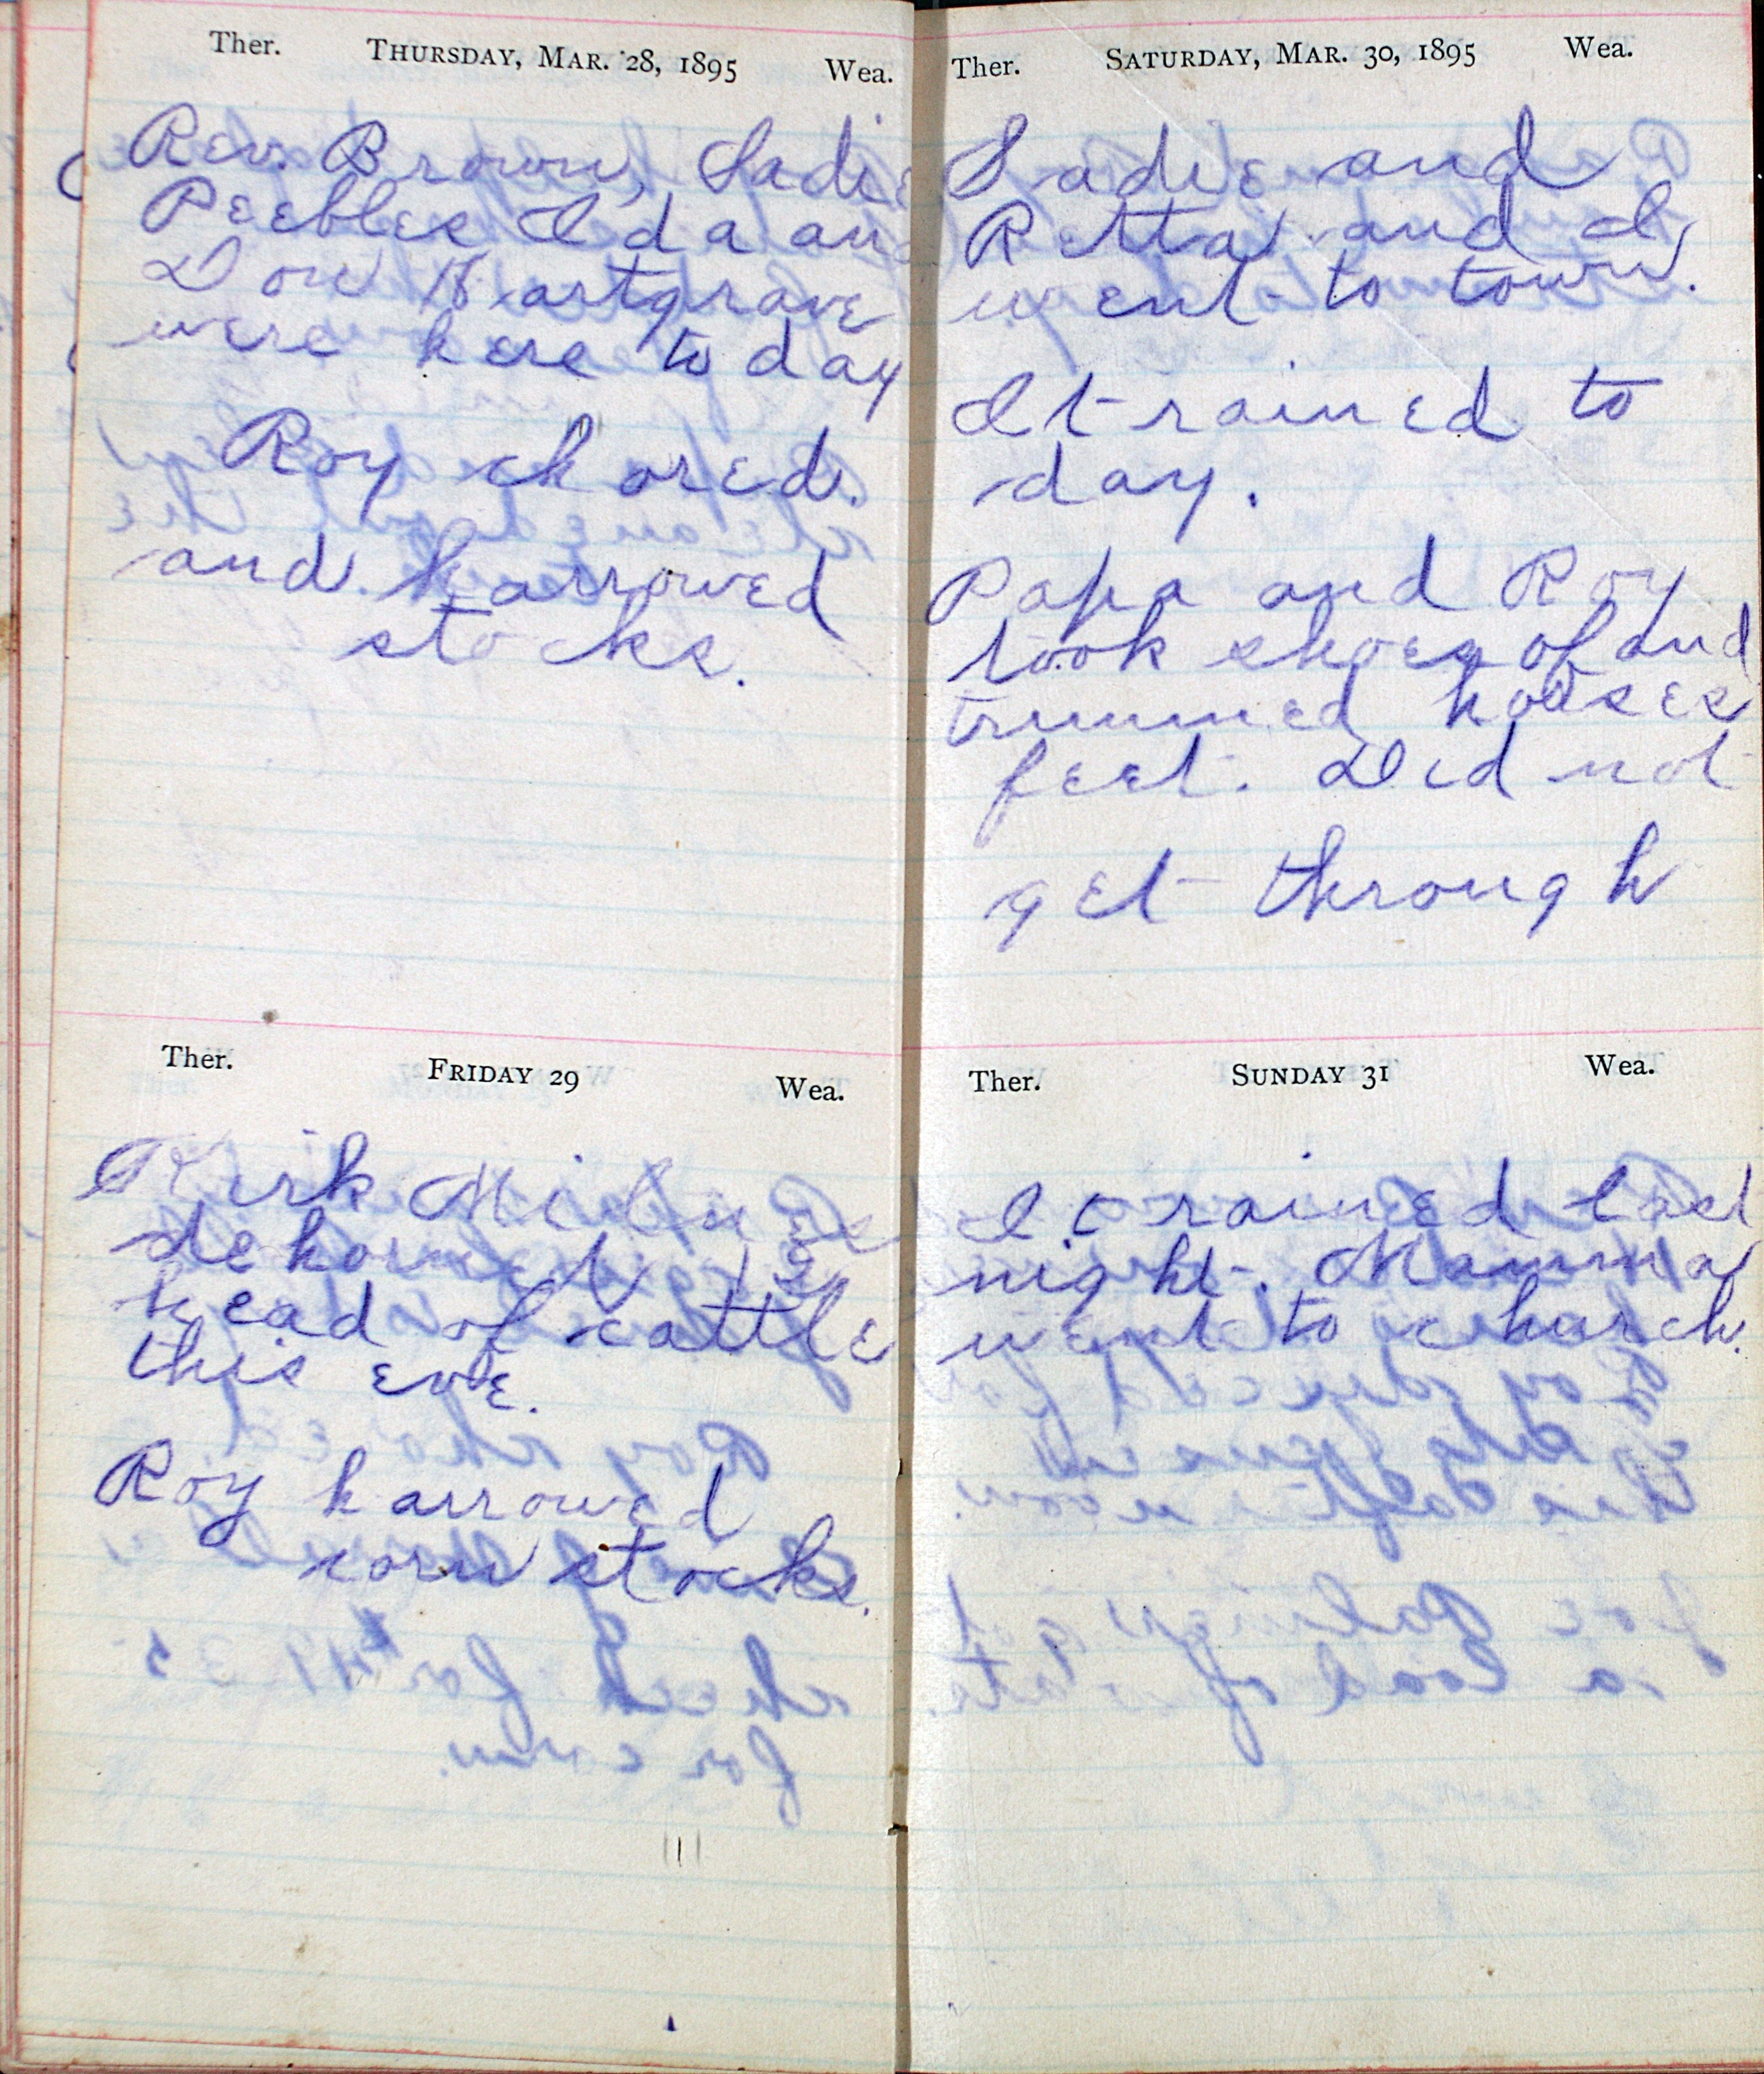 Ther. THURSDAY, MAR. 28, 1895 Wea.
Rev. Brown, Sadie
Peebles Ida and
Dow Hartgrave
were here to day
Roy chored.
and harrowed
stocks.
Ther. FRIDAY 29 Wea.
Kirk Milnes
dehorned 12
head of cattle
this eve.
Roy harrowed
corn stocks.
Ther. SATURDAY, MAR. 30, 1895 Wea.
Sadie and
Retta and I
went to town.
It rained to
day.
Papa and Roy
took shoes of and
trimmed horses
feet. Did not
get through
Ther. SUNDAY 31 Wea.
It rained last
night. Mamma
went to church.